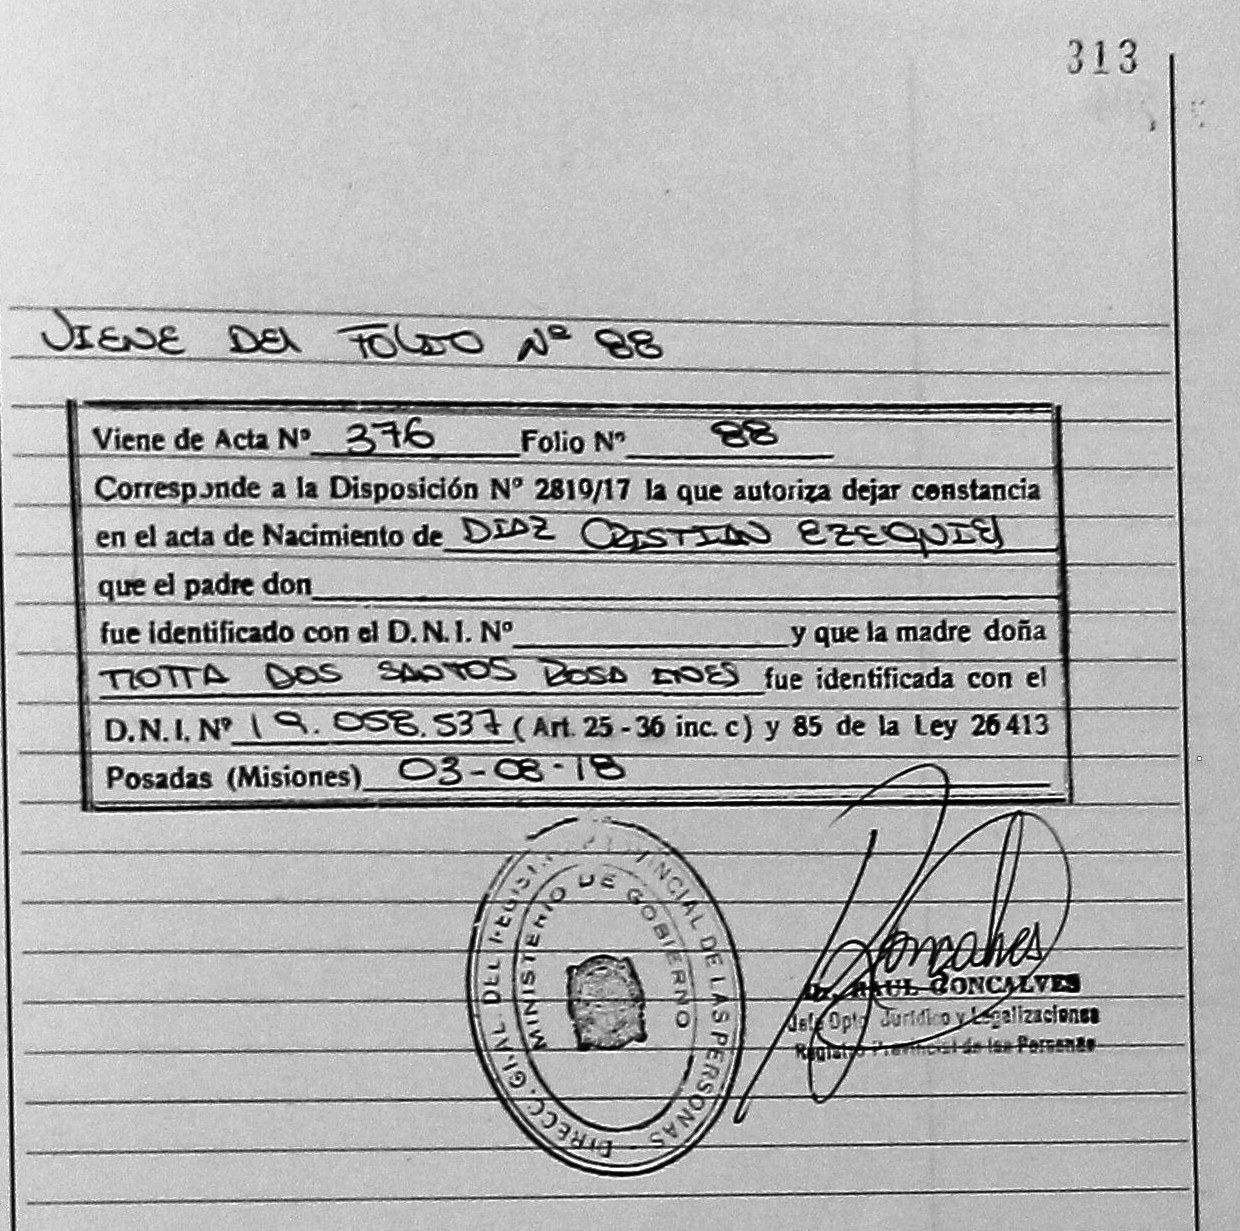 313
VIENE DEL FOLIO Nº 88
Viene de Acta Nº 376 Folio Nº 88
Corresponde a la Disposición Nº 2819/17 la que autoriza dejar constancia
en el acta de Nacimiento de DIAZ CRISTIAN EZEQUIEL
que el padre don
fue identificado con el D.N.I. Nº y que la madre doña
MOTTA DOS SANTOS ROSA INES fue identificada con el
D.N.I. Nº 19.058.537 (Art. 25 - 36 inc. c) y 85 de la Ley 26413
Posadas (Misiones) 03-08-18
DIRECC. GRAL. DEL REGISTRO PROVINCIAL DE LAS PERSONAS
MINISTERIO DE GOBIERNO
Goncalves
Dr. RAUL GONCALVES
Jefe Dpto Jurídico y Legalizaciones
Registro Provincial de las Personas